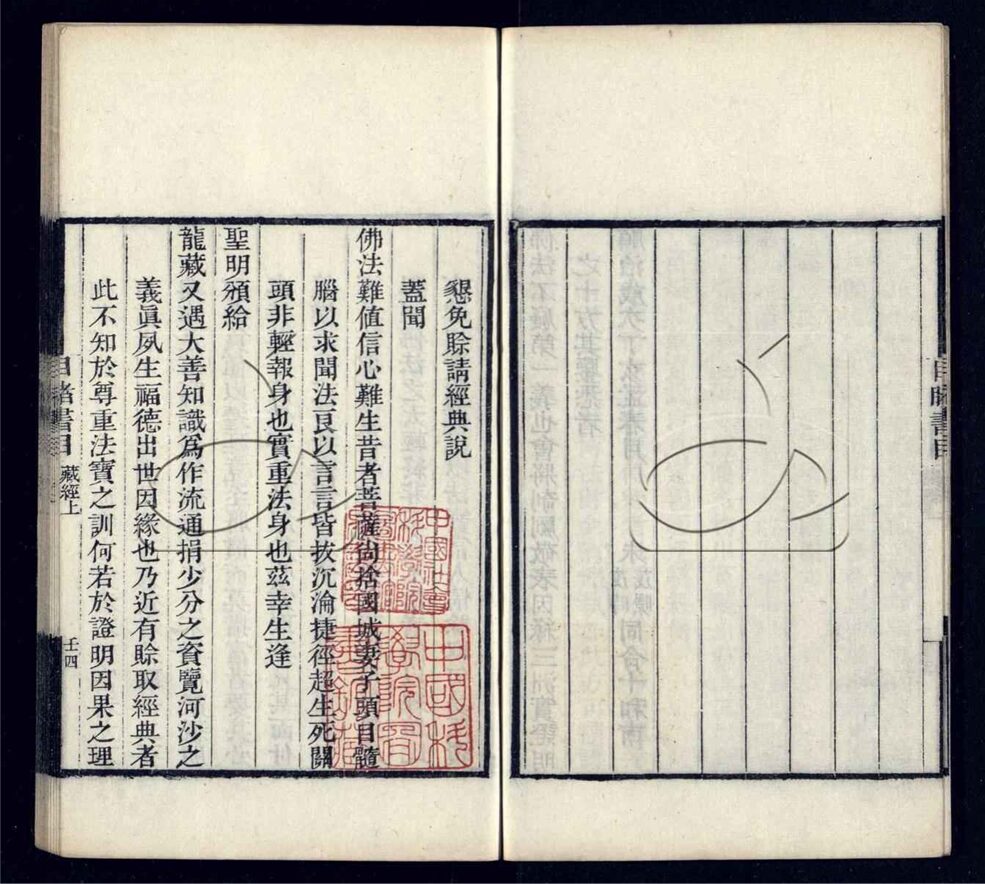 懇免賒請經典說
蓋聞
佛法難值信心難生昔者菩薩尙捨國城妻子頭目髓
腦以求聞法良以言言皆拔沉淪捷徑超生死關
頭非輕報身也實重法身也茲幸生逢
聖明頒給
龍藏又遇大善知識爲作流通捐少分之資覽河沙之
義眞夙生福德出世因緣也乃近有賒取經典者
此不知於尊重法寶之訓何若於證明因果之理
書目
藏經上
四